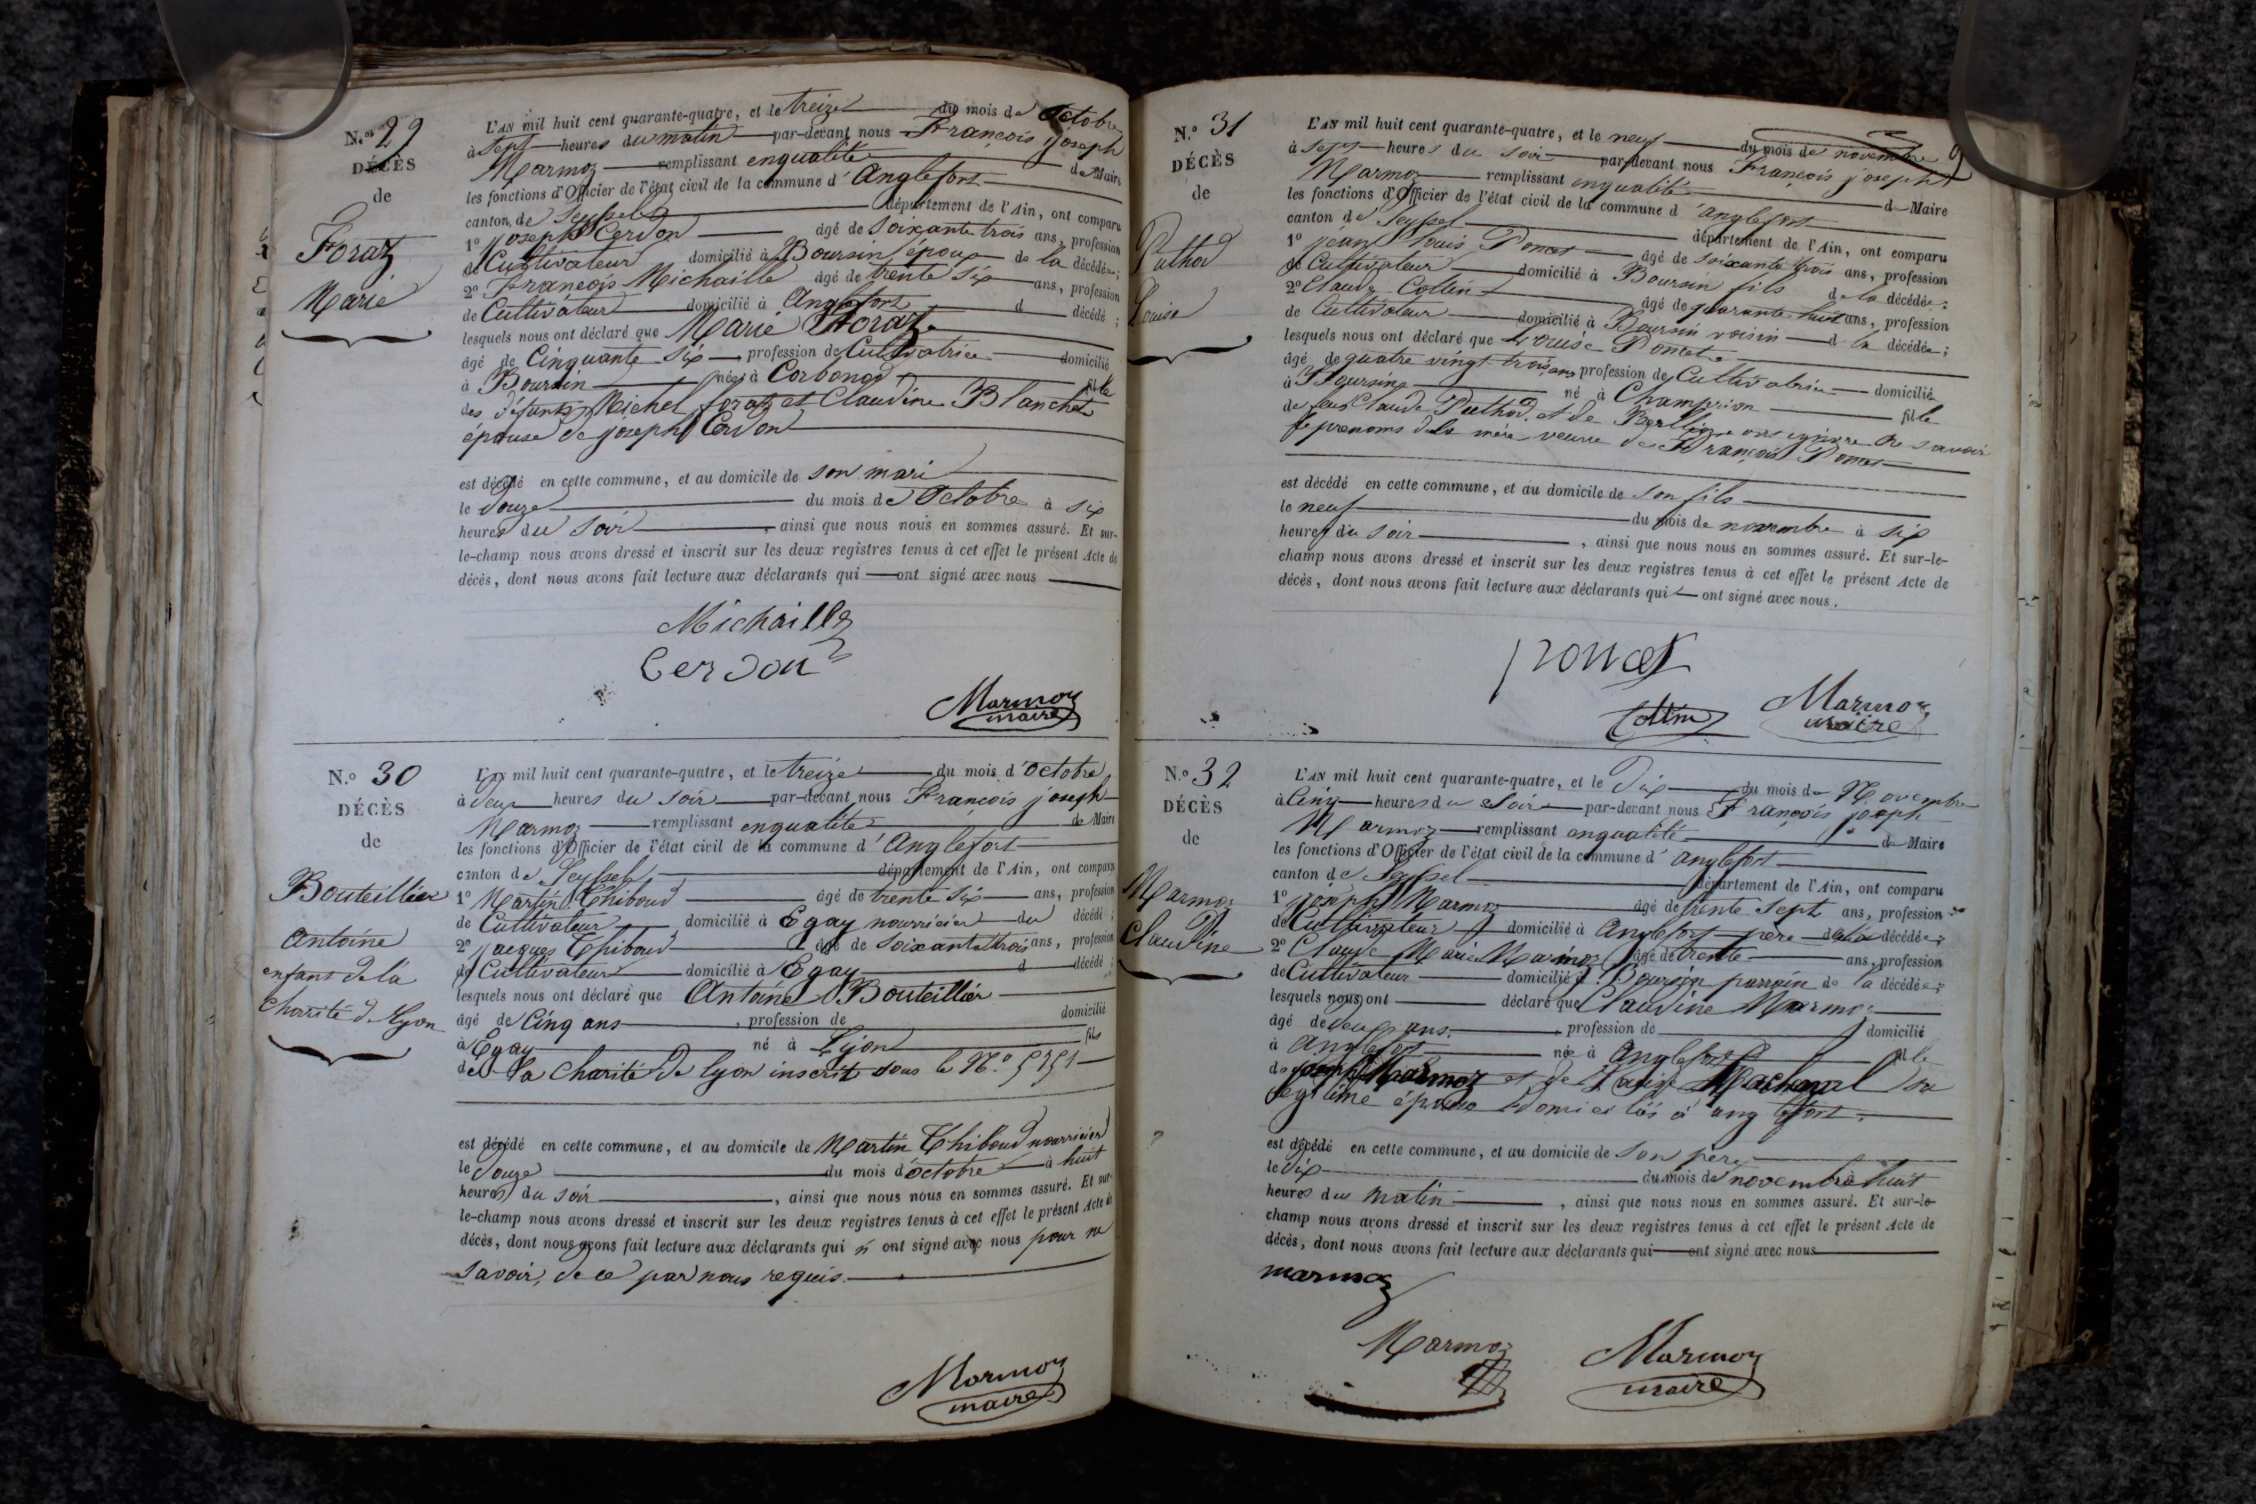 N.º 29
DÉCÈS
de
Foraz
Marie
L'AN mil huit cent quarante-quatre, et le treize du mois de octobre
à Sept heures du matin par-devant nous François joseph
Marmoz remplissant enqualité de Maire
les fonctions d'Officier de l'état civil de la commune d' Anglefort
canton de Seyssel département de l'Ain, ont comparu
1º joseph Cerdon âgé de soixante trois ans, profession
de Cultivateur domicilié à Boursin époux de la décédée;
2º François Michaille âgé de trente six ans, profession
de Cultivateur domicilié à Anglefort d décédé ;
lesquels nous ont déclaré que Marie Foraz
âgé de Cinquante six profession de Cultivatrice domicilié
à Boursin née à Corbonod fille
des défunts Michel foraz et Claudine Blanchet
épouse de joseph Cerdon
est décédé en cette commune, et au domicile de son mari
le Douze du mois de Octobre à six
heures du soir , ainsi que nous nous en sommes assuré. Et sur-
le-champ nous avons dressé et inscrit sur les deux registres tenus à cet effet le présent Acte de
décès, dont nous avons fait lecture aux déclarants qui ont signé avec nous
Michaille
Cerdon
Marmoz
maire
N.º 30
DÉCÈS
de
Bouteillier
Antoine
enfant de la
Charité de Lyon
L'AN mil huit cent quarante-quatre, et le treize du mois d'octobre
à deux heures du soir par-devant nous François joseph
Marmoz remplissant enqualité de Maire
les fonctions d'Officier de l'état civil de la commune d' Anglefort
canton de Seyssel département de l'Ain, ont comparu
1º Martin Thiboud âgé de trente six ans, profession
de Cultivateur domicilié à Egay nourricier du décédé ;
2º jacques Thiboud âgé de soixante trois ans, profession
de Cultivateur domicilié à Egay d décédé ;
lesquels nous ont déclaré que Antoine Bouteillier
âgé de Cinq ans , profession de domicilié
à Egay né à Lyon fils
de la Charité de lyon inscrit sous le Nº 5751
est décédé en cette commune, et au domicile de Martin Thiboud nourricier
le Douze du mois d'octobre à huit
heures du soir , ainsi que nous nous en sommes assuré. Et sur-
le-champ nous avons dressé et inscrit sur les deux registres tenus à cet effet le présent Acte de
décès, dont nous avons fait lecture aux déclarants qui n' ont signé avec nous pour ne
savoir, de ce par nous requis.
Marmoz
maire
N.º 31
DÉCÈS
de
Puthod
Louise
L'AN mil huit cent quarante-quatre, et le neuf du mois de novembre
à sept heures du soir par-devant nous François joseph
Marmoz remplissant enqualité de Maire
les fonctions d'Officier de l'état civil de la commune d' Anglefort
canton de Seyssel département de l'Ain, ont comparu
1º jean louis Poncet âgé de soixante trois ans, profession
de Cultivateur domicilié à Boursin fils de la décédée;
2º Claude Collin âgé de quarante huit ans, profession
de Cultivateur domicilié à Boursin voisin d la décédée;
lesquels nous ont déclaré que Louise
âgé de quatre vingt trois ans profession de Cultivatrice domicilié
à Boursin né à Champrion fille
de feu Claude Puthod et de ignore
le prenoms de la mère veuve de François Poncet
est décédé en cette commune, et au domicile de son fils
le neuf du mois de novembre à six
heures du soir , ainsi que nous nous en sommes assuré. Et sur-le-
champ nous avons dressé et inscrit sur les deux registres tenus à cet effet le présent Acte de
décès, dont nous avons fait lecture aux déclarants qui ont signé avec nous.
poncet
Collin
Marmoz
maire
N.º 32
DÉCÈS
de
Marmoz
Claudine
L'AN mil huit cent quarante-quatre, et le Dix du mois de Novembre
à Cinq heures du soir par-devant nous François joseph
Marmoz remplissant enqualité de Maire
les fonctions d'Officier de l'état civil de la commune d' anglefort
canton de Seyssel département de l'Ain, ont comparu
1º joseph Marmoz âgé de trente sept ans, profession
de Cultivateur domicilié à Anglefort père de la décédée;
2º Claude Marie Marmoz âgé de trente ans, profession
de Cultivateur domicilié à Boursin parrain de la décédée;
lesquels nous ont déclaré que Claudine Marmoz
âgé de deux ans , profession de domicilié
à Anglefort née à Anglefort fille
de joseph Marmoz et de sa
legitime épouse domiciliés à anglefort.
est décédé en cette commune, et au domicile de son père
le dix du mois de novembre à huit
heures du matin , ainsi que nous nous en sommes assuré. Et sur-le-
champ nous avons dressé et inscrit sur les deux registres tenus à cet effet le présent Acte de
décès, dont nous avons fait lecture aux déclarants qui ont signé avec nous
marmoz
Marmoz
Marmoz
maire